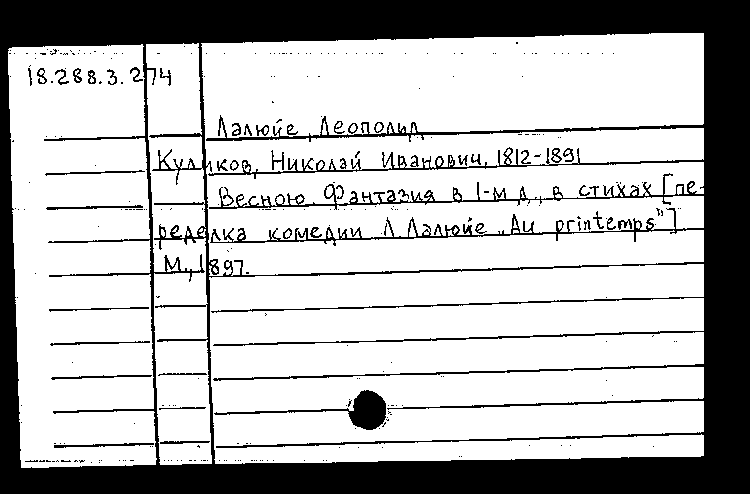 18.288.3.274
Лалюйе, Леопольд
Куликов, Николай Иванович, 1812-1891
Весною. Фантазия в 1-м д., в стихах [пе-
ределка комедии Л. Лалюйе „Au printemps"]
М., 1897.